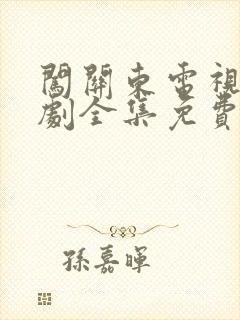 闖關東電視
劇全集免費
孫嘉暉